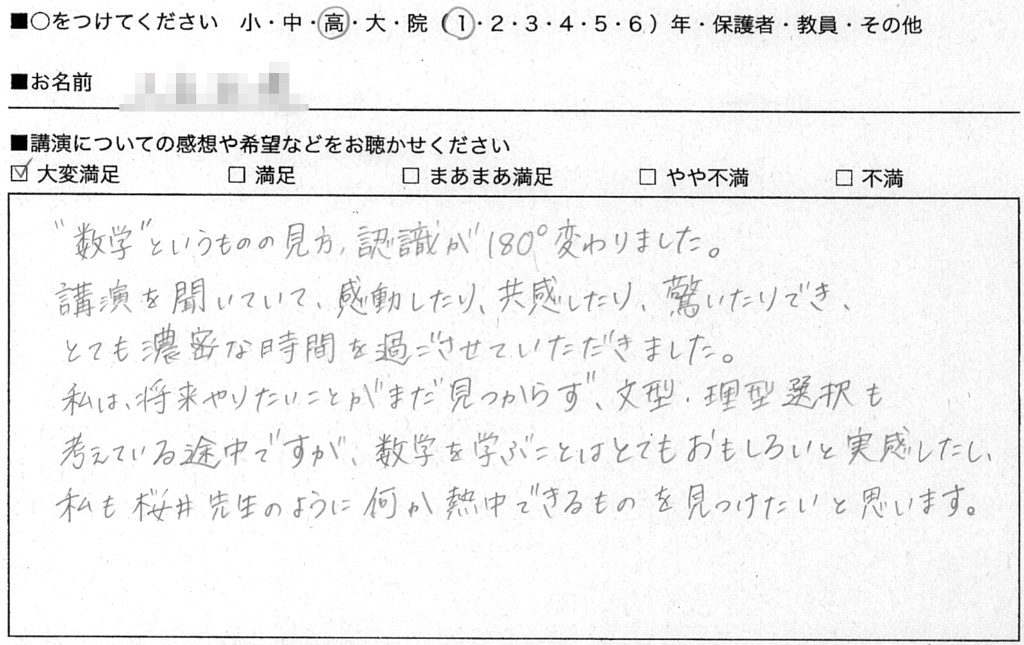 ■○をつけてください 小・中・高・大・院（1・2・3・4・5・6）年・保護者・教員・その他
■お名前
■講演についての感想や希望などをお聴かせください
☑ 大変満足 □ 満足 □ まあまあ満足 □ やや不満 □ 不満
"数学"というものの見方、認識が180°変わりました。
講演を聞いていて、感動したり、共感したり、驚いたりでき、
とても濃密な時間を過ごさせていただきました。
私は、将来やりたいことがまだ見つからず、文型・理型選択も
考えている途中ですが、数学を学ぶことはとてもおもしろいと実感したし、
私も桜井先生のように何か熱中できるものを見つけたいと思います。